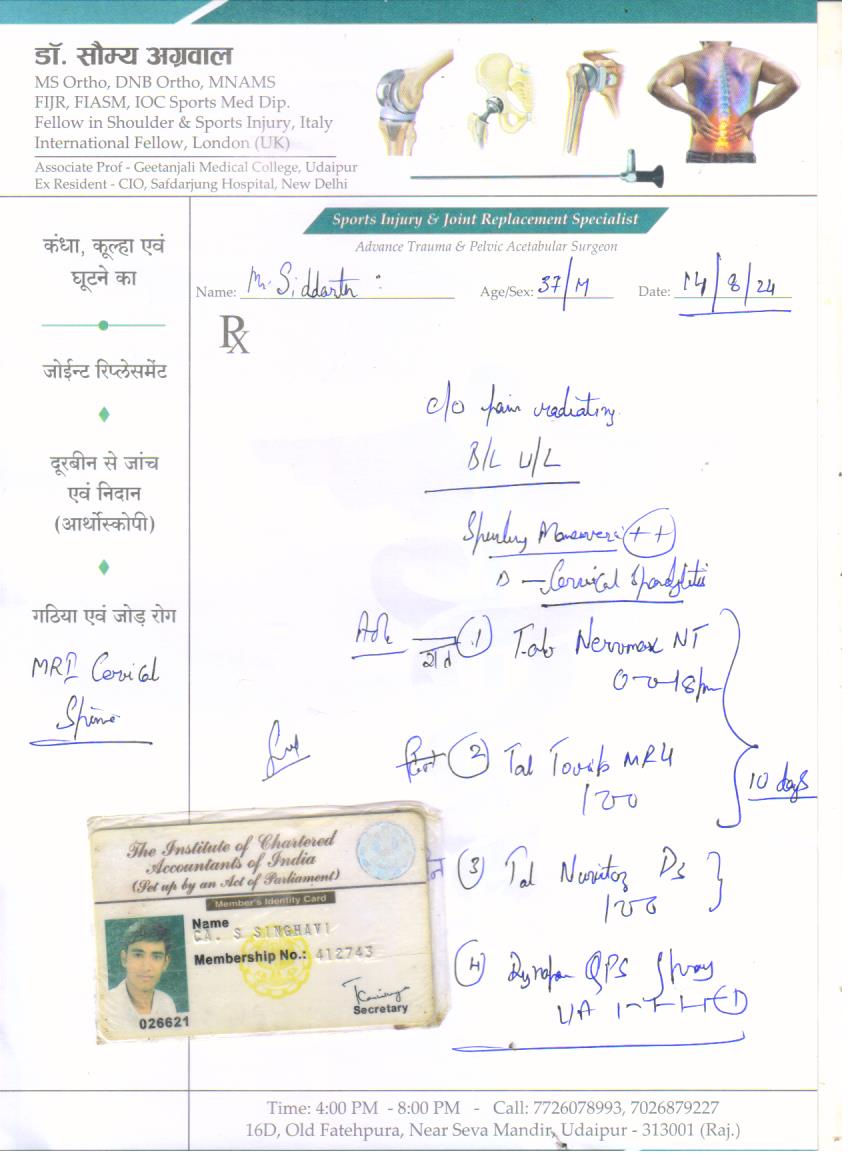 डॉ. सौम्य अग्रवाल
MS Ortho, DNB Ortho, MNAMS
FIJR, FIASM, IOC Sports Med Dip.
Fellow in Shoulder & Sports Injury, Italy
International Fellow, London (UK)
Associate Prof - Geetanjali Medical College, Udaipur
Ex Resident - CIO, Safdarjung Hospital, New Delhi
Sports Injury & Joint Replacement Specialist
Advance Trauma & Pelvic Acetabular Surgeon
Name: Mr. Siddarth Age/Sex: 37/M Date: 14/8/24
Rx
कंधा, कूल्हा एवं
घूटने का
जोईन्ट रिप्लेसमेंट
दूरबीन से जांच
एवं निदान
(आर्थोस्कोपी)
गठिया एवं जोड़ रोग
MRI Cervical
Spine
c/o pain radiating
B/L U/L
++
D — Cervical Spondylitis
1) Tab Nervmax NT
8pm
2) Tab MR4
100
10 days
3) Tab D3
100
4) QPS Spray
L/A
The Institute of Chartered
Accountants of India
(Set up by an Act of Parliament)
Member's Identity Card
Name
CA. S SINGHAVI
Membership No.: 412743
Secretary
026621
Time: 4:00 PM - 8:00 PM - Call: 7726078993, 7026879227
16D, Old Fatehpura, Near Seva Mandir, Udaipur - 313001 (Raj.)